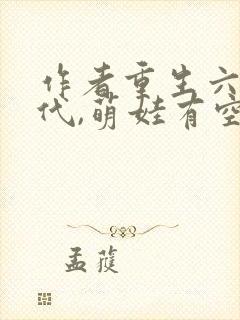 作者重生六
代,萌娃有空
孟蓷